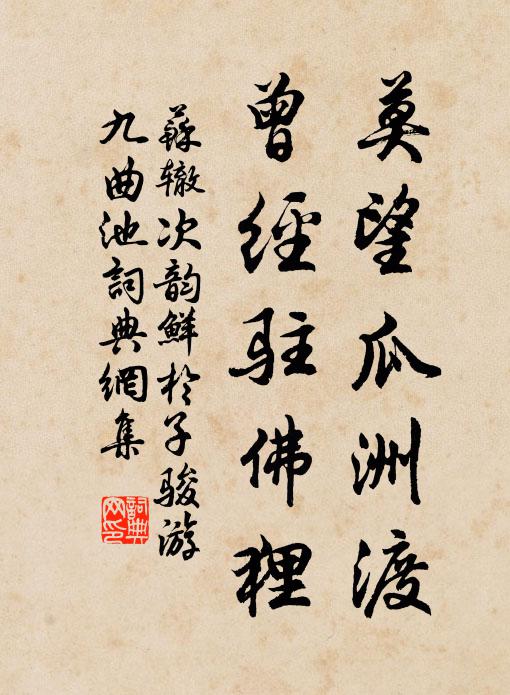 莫望瓜洲渡
曾經駐佛狸
蘇辙次韵鮮於子駿游
九曲池詞典網集
詞典网印